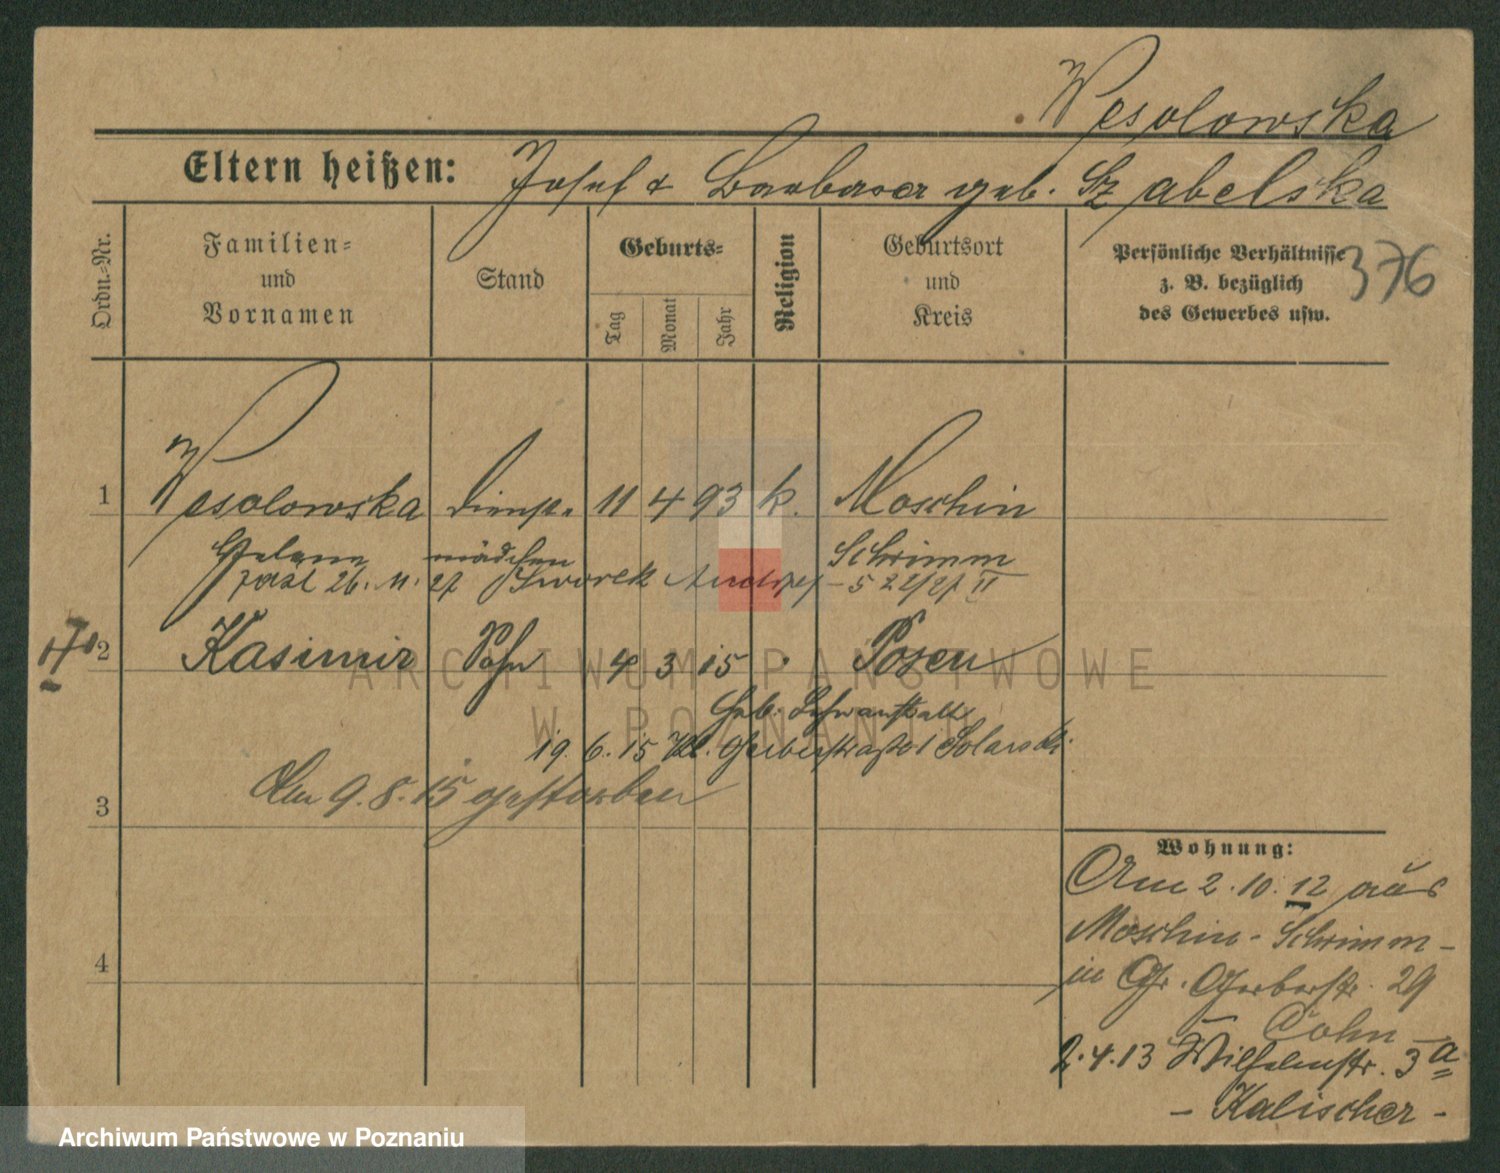 Wesolowska
Eltern heißen: Josef & Barbara geb. Szabelska
Ordn.-Nr.
Familien-
und
Vornamen
Stand
Geburts-
Tag
Monat
Jahr
Religion
Geburtsort
und
Kreis
Persönliche Verhältnisse
z. B. bezüglich
des Gewerbes usw.
376
1 Wesolowska Dienst- 11 4 93 k. Moschin
mädchen Schrimm
26. 11. 27 Dworek
2 Kasimir Sohn 4 3 15 Posen
Geb.
19. 6. 15 Kl. Gerberstraße 1 Solarski
3 Am 9. 8. 15 gestorben
4
Wohnung:
Am 2. 10. 12 aus
Moschin - Schrimm -
in Gr. Gerberstr. 29
Cohn
2. 4. 13 Wilhelmstr. 3a
- Kalischer -
ARCHIWUM PAŃSTWOWE
W POZNANIU
Archiwum Państwowe w Poznaniu